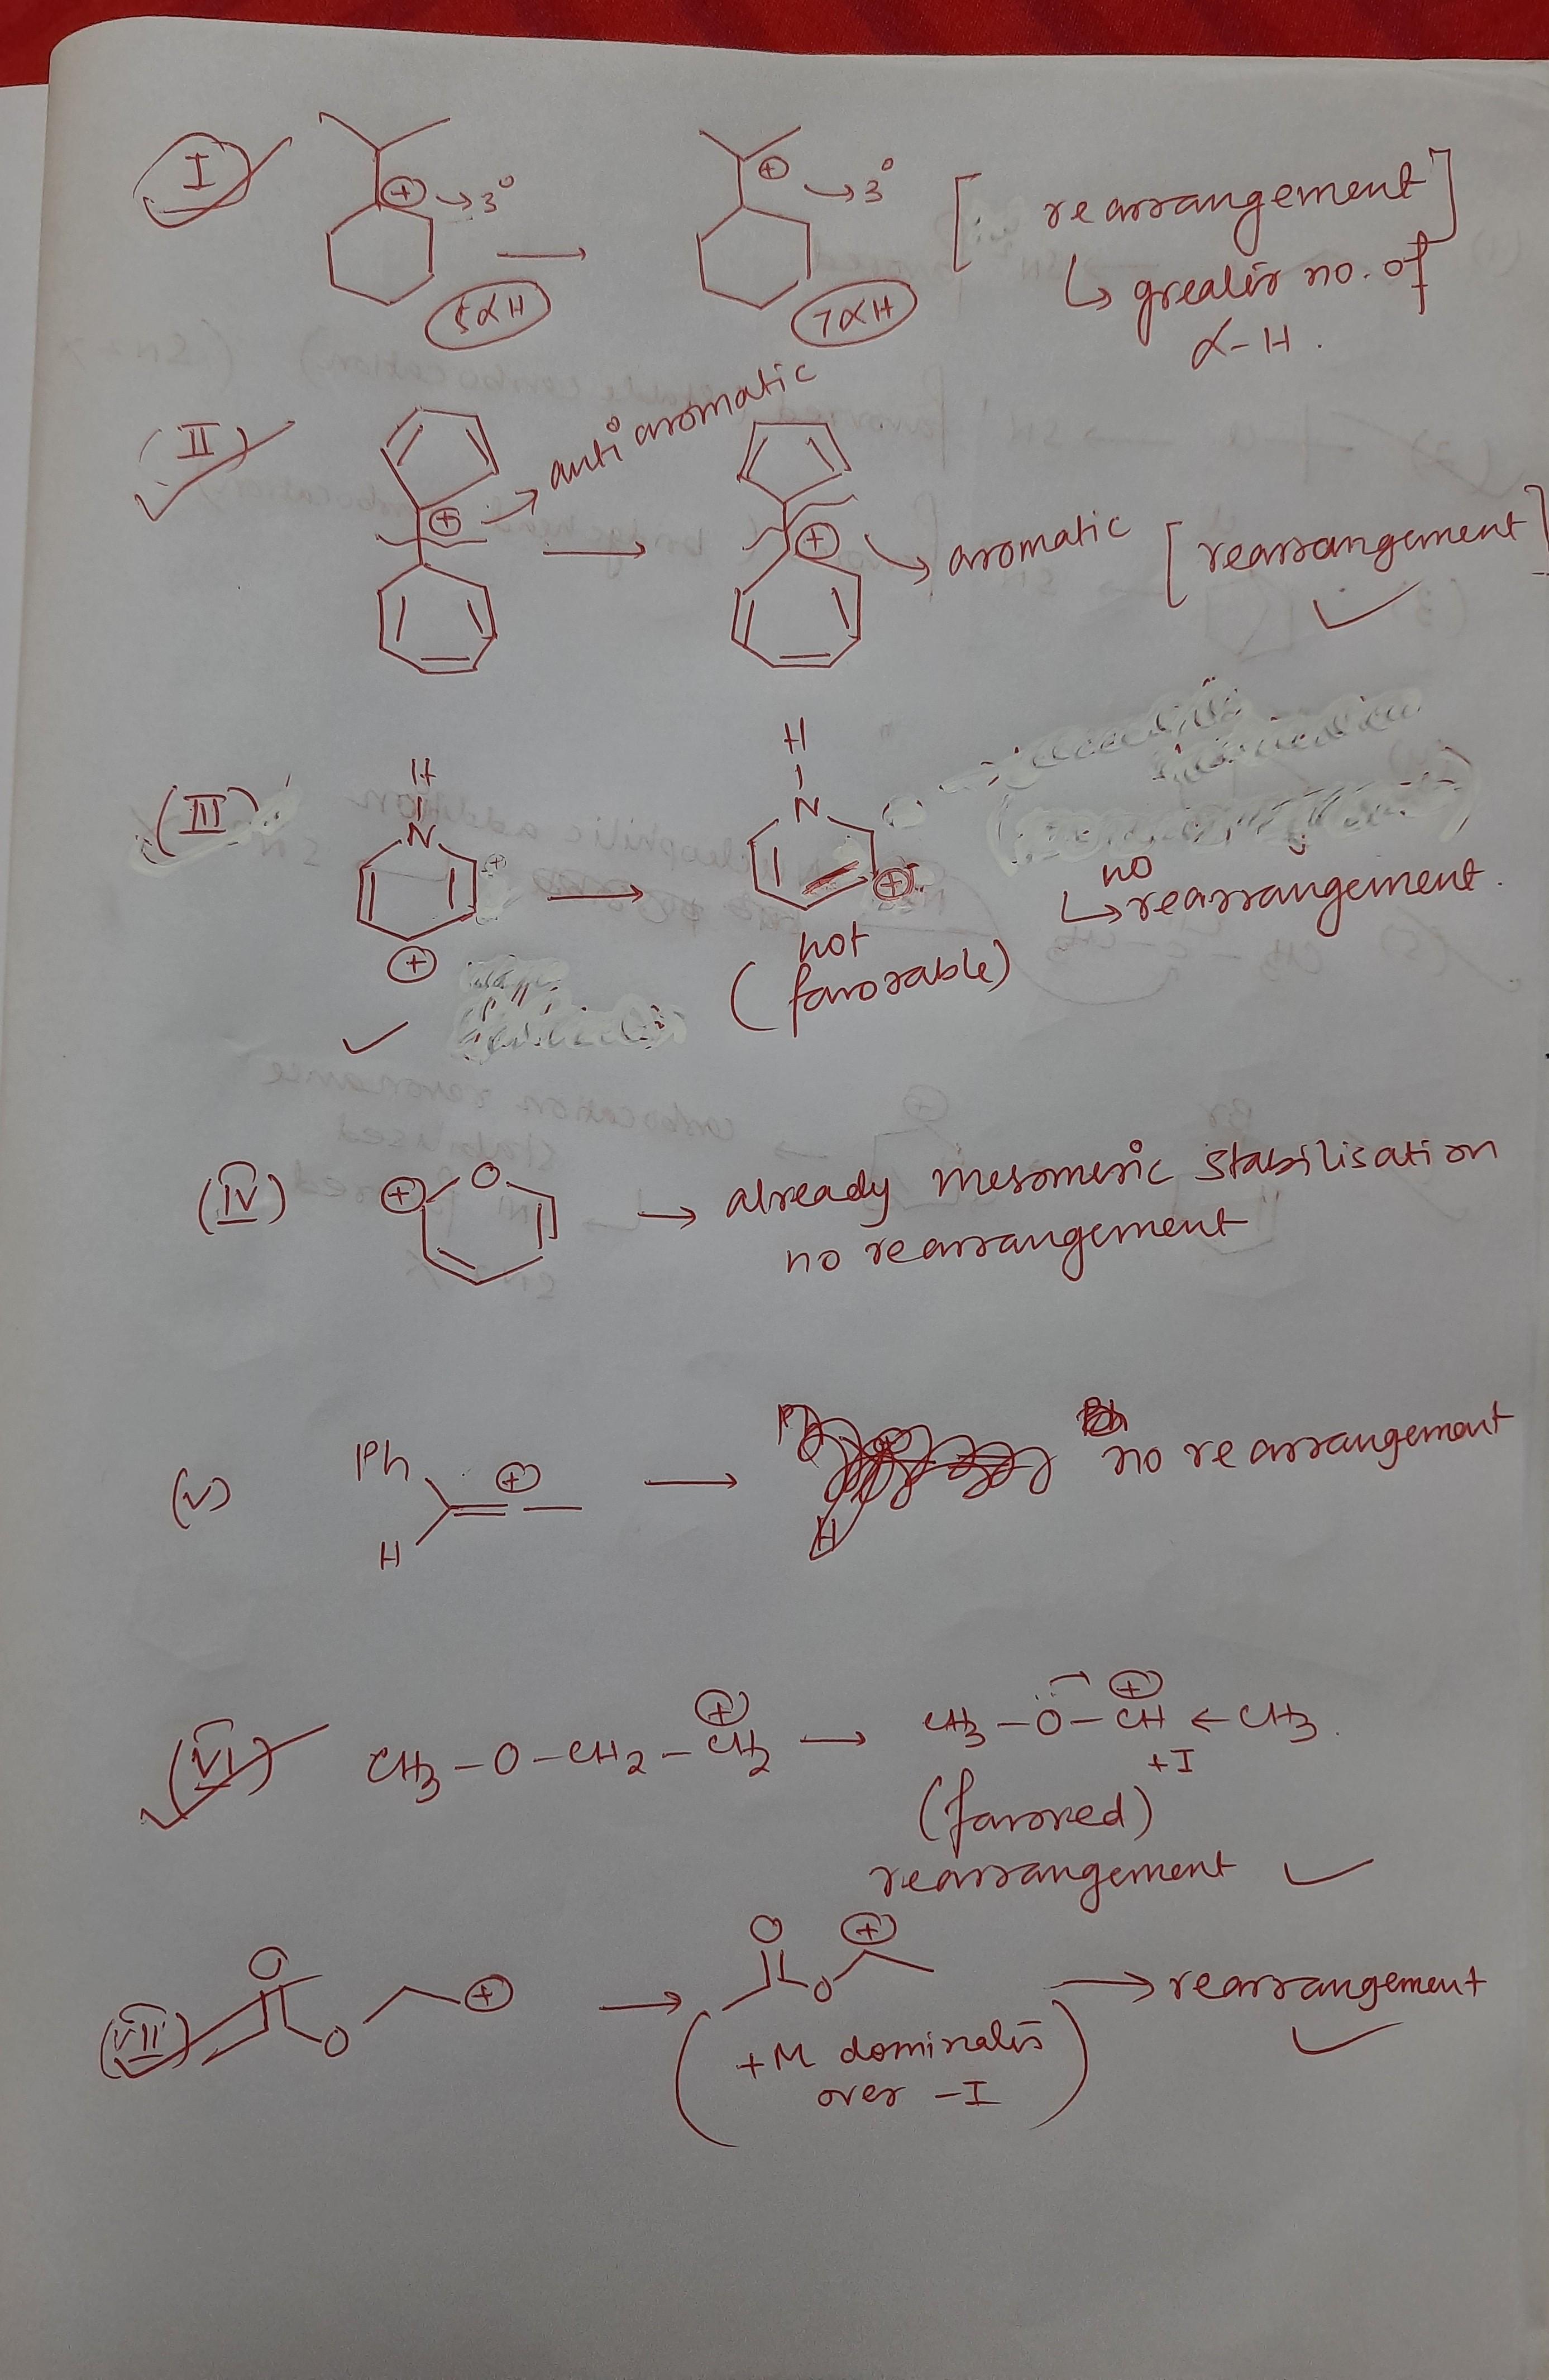 I
⊕ → 3°
⊕ → 3°
[ rearrangement ]
↳ greater no. of
α-H.
5αH
7αH
(II)
antiaromatic
⊕
⊕
aromatic [rearrangement]
(III)
H
N
⊕
⊕
H
N
⊕
no
↳ rearrangement.
not
(favorable)
(IV)
⊕ O → already mesomeric stabilisation
no rearrangement
(V)
Ph
⊕
H
→ no rearrangement
(VI)
CH3 - O - CH2 - CH2 ⊕ → CH3 - O - CH ← CH3.
⊕
+I
(favored)
rearrangement ✓
(VII)
O
O
⊕
→
O
O
⊕
→ rearrangement
(+M dominates
over -I)